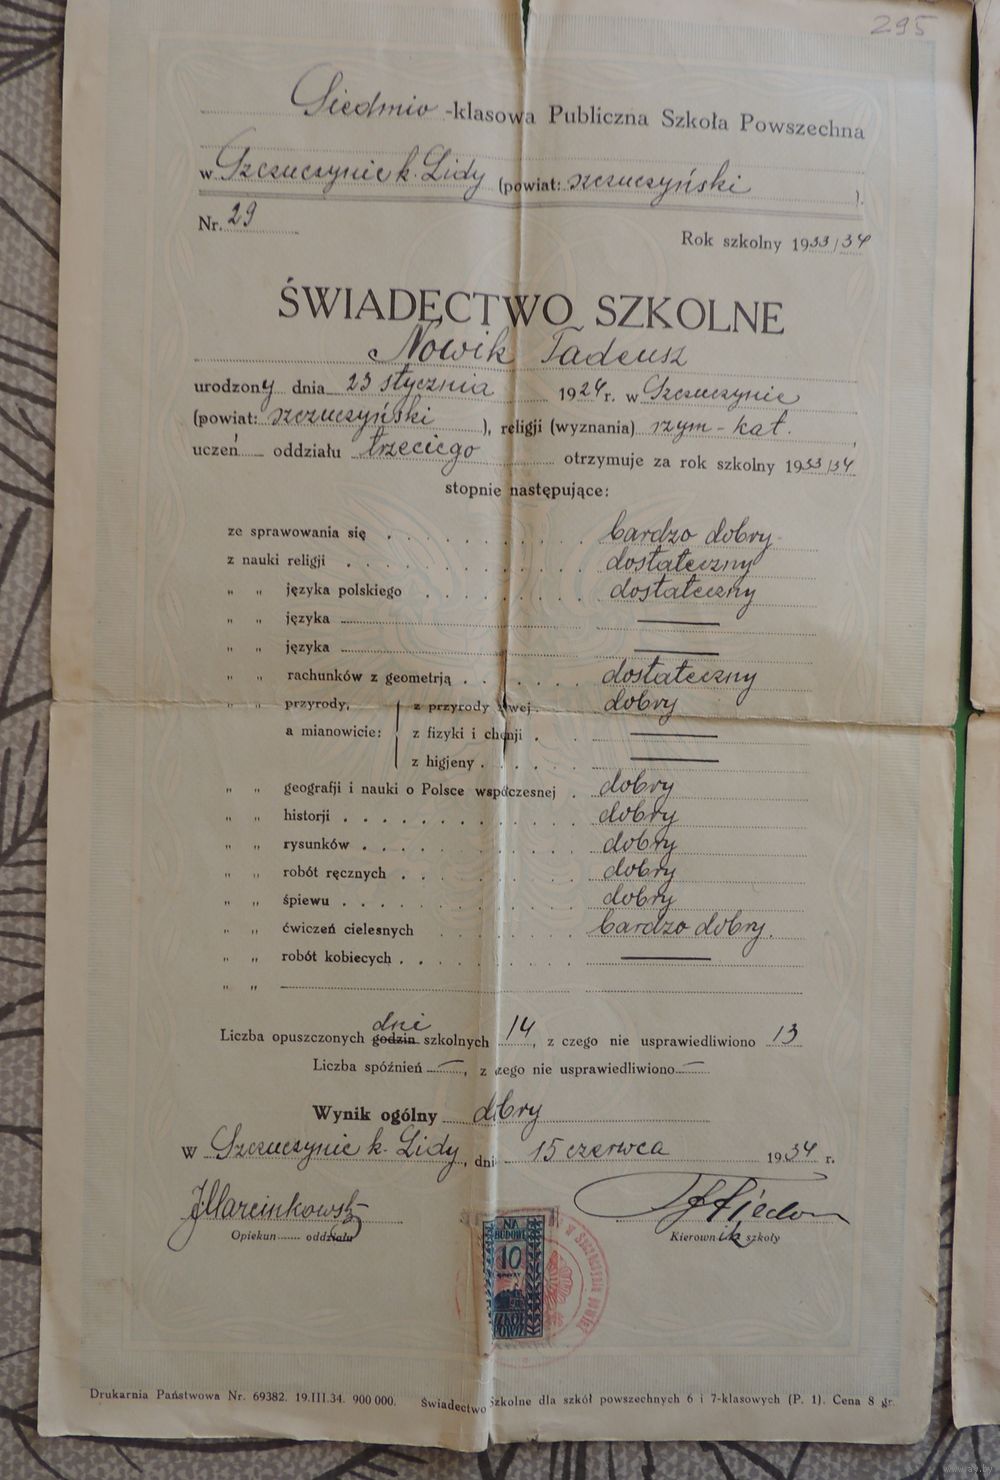 295
Siedmio -klasowa Publiczna Szkoła Powszechna
w Szczuczynie k. Lidy (powiat: szczuczyński ).
Nr. 29
Rok szkolny 1933/34
ŚWIADECTWO SZKOLNE
Nowik Tadeusz
urodzony dnia 23 stycznia 1924 r. w Szczuczynie
(powiat: szczuczyński ), religji (wyznania) rzym-kat.
uczeń oddziału trzeciego otrzymuje za rok szkolny 1933/34
stopnie następujące:
ze sprawowania się bardzo dobry
z nauki religji dostateczny
" " języka polskiego dostateczny
" " języka —
" " języka —
" " rachunków z geometrją dostateczny
" " przyrody, z przyrody żywej dobry
a mianowicie: z fizyki i chemji —
z higjeny —
" " geografji i nauki o Polsce współczesnej dobry
" " historji dobry
" " rysunków dobry
" " robót ręcznych dobry
" " śpiewu dobry
" " ćwiczeń cielesnych bardzo dobry.
" " robót kobiecych —
" "
dni
Liczba opuszczonych godzin szkolnych 14, z czego nie usprawiedliwiono 13
Liczba spóźnień —, z czego nie usprawiedliwiono —
Wynik ogólny dobry
w Szczuczynie k. Lidy, dnia 15 czerwca 1934 r.
J Marcinkowska
Opiekun oddziału
Kierownik szkoły
NA
BUDOWĘ
10
GROSZY
SZKÓŁ
POWSZ
w Szczuczynie powiat
Drukarnia Państwowa Nr. 69382. 19.III.34. 900 000. Świadectwo Szkolne dla szkół powszechnych 6 i 7-klasowych (P. 1). Cena 8 gr.
www.av.by